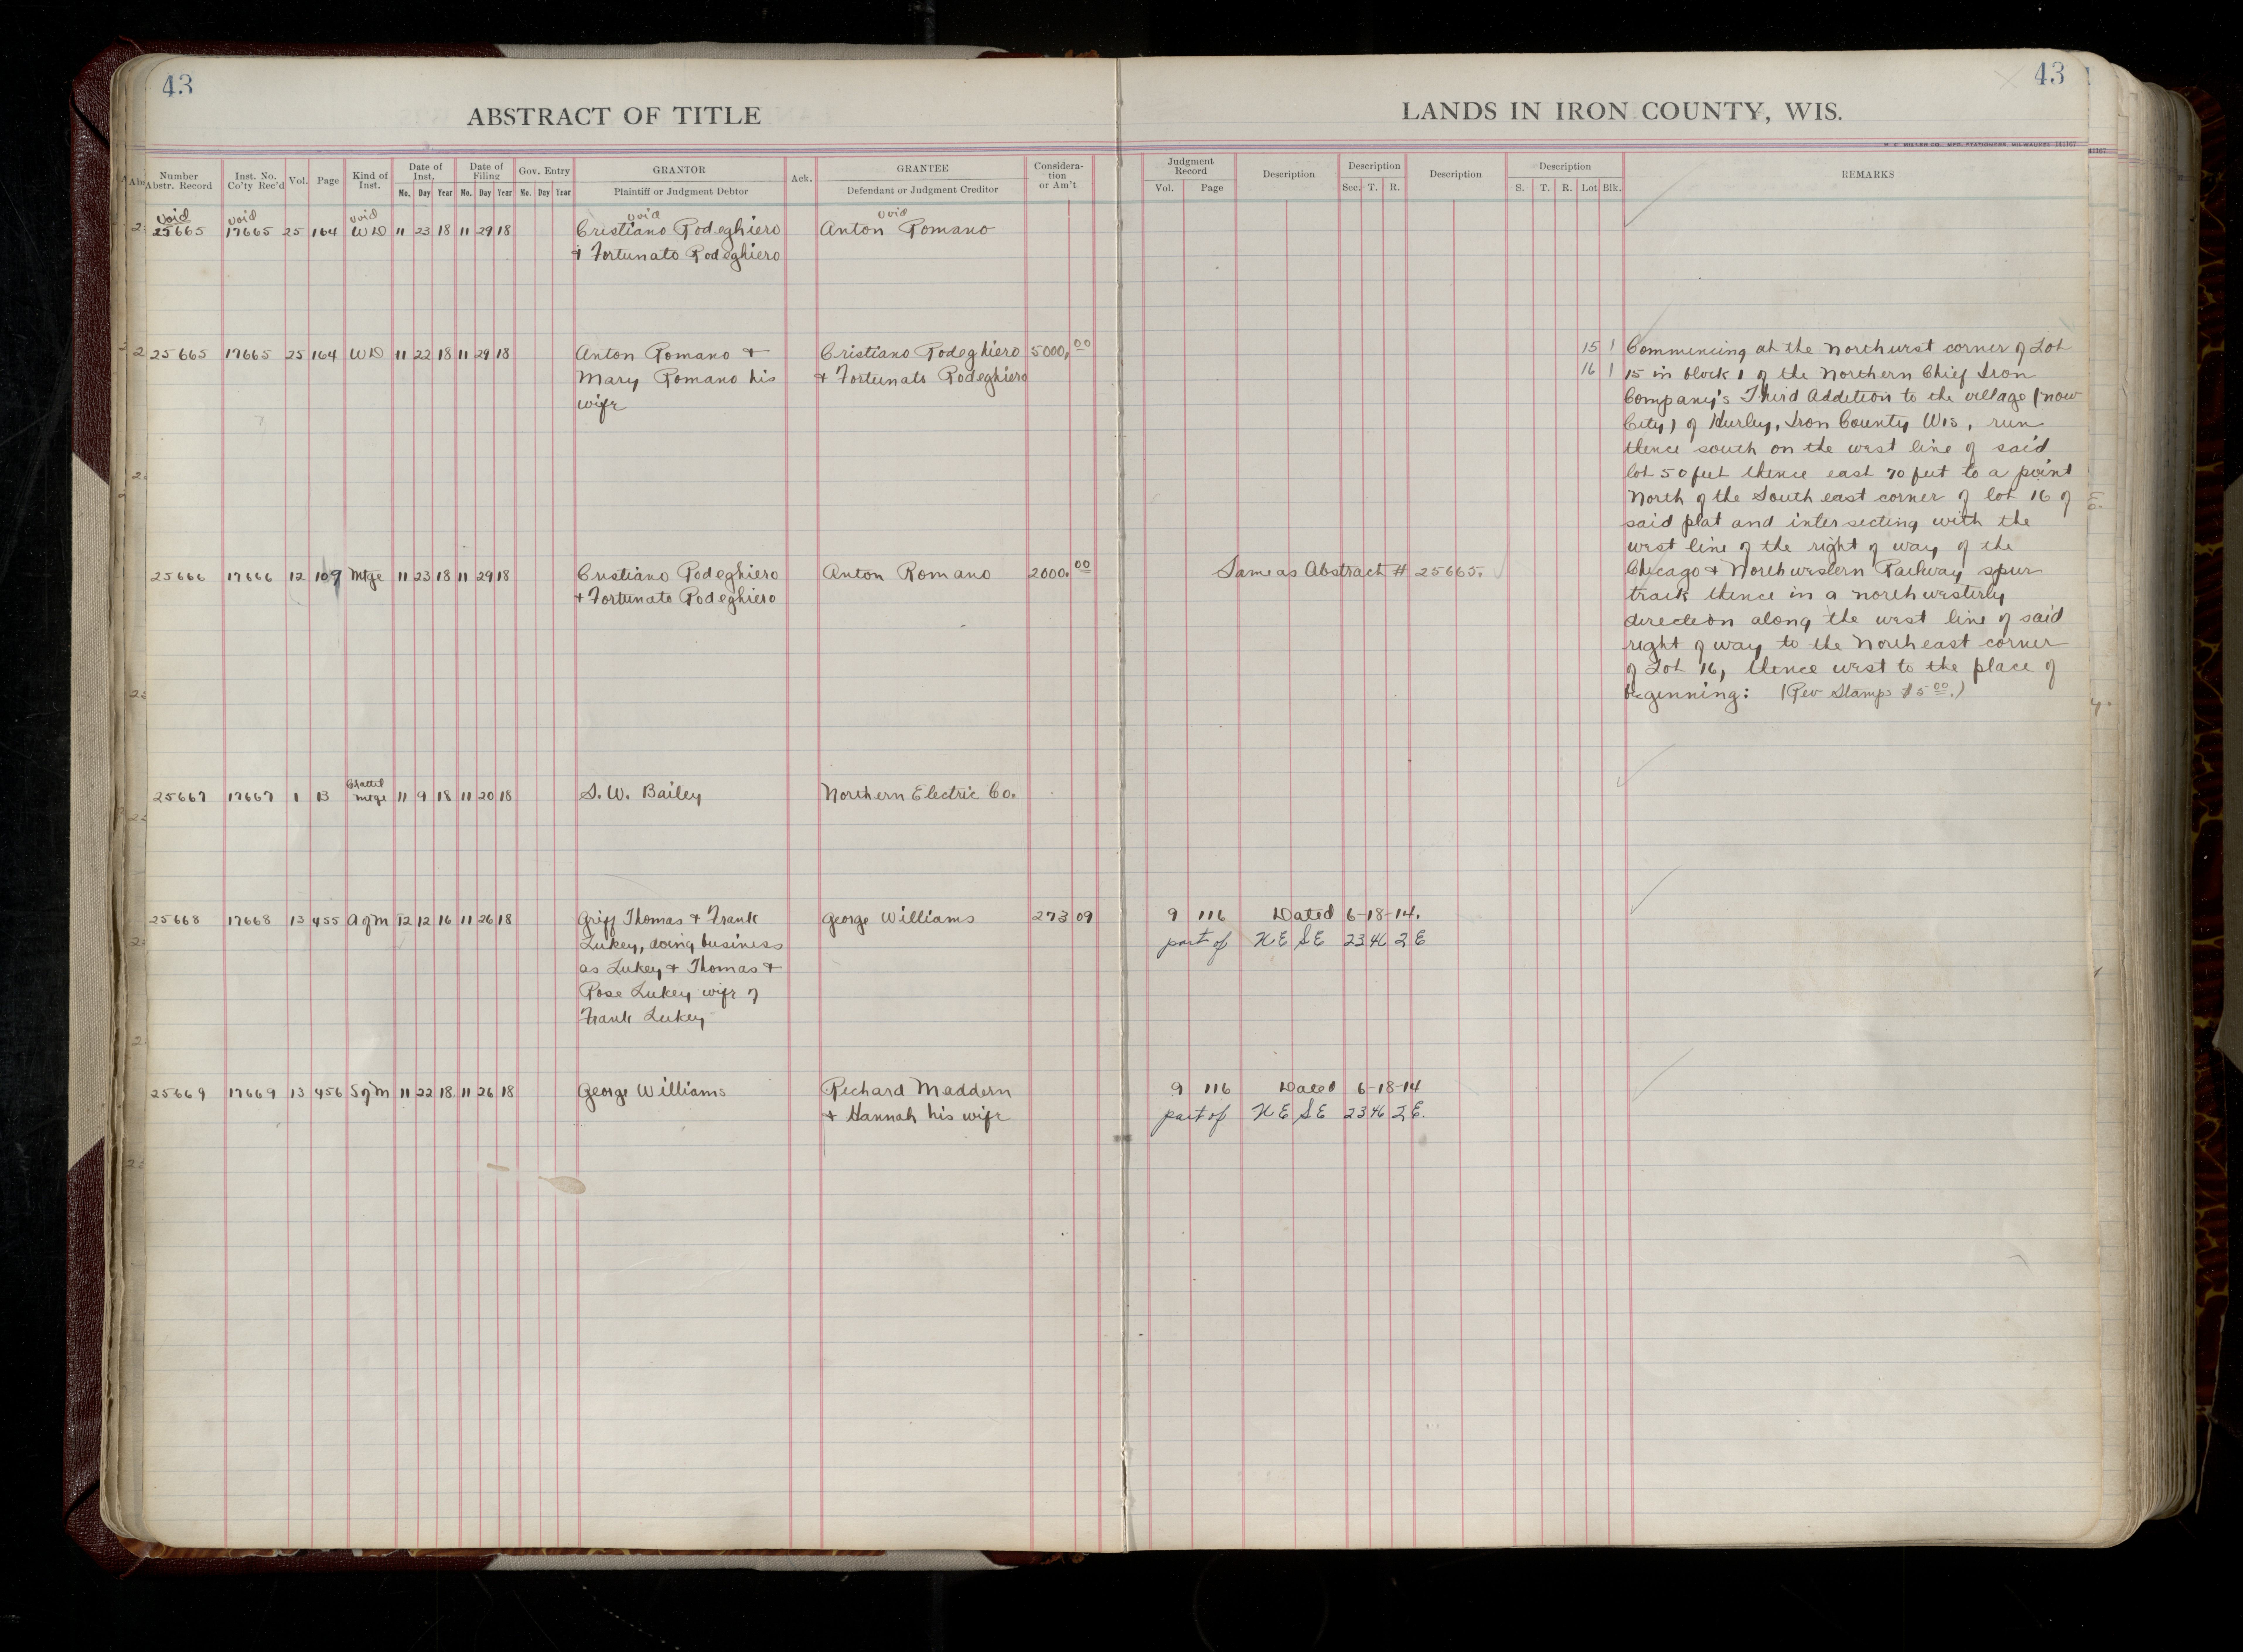 43
ABSTRACT OF TITLE
Number Abstr. Record
Inst. No. Co'ty Rec'd
Vol.
Page
Kind of Inst.
Date of Inst.
Mo. Day Year
Date of Filing
Mo. Day Year
Gov. Entry
Mo. Day Year
GRANTOR
Plaintiff or Judgment Debtor
Ack.
GRANTEE
Defendant or Judgment Creditor
Considera-
tion
or Am't
void void void void void
25665 17665 25 164 WD 11 23 18 11 29 18 Cristiano Rodeghiero Anton Romano
+ Fortunato Rodeghiero
25665 17665 25 164 WD 11 22 18 11 29 18 Anton Romano + Cristiano Rodeghiero 5000.00
Mary Romano his + Fortunato Rodeghiero
wife
25666 17666 12 109 Mtge 11 23 18 11 29 18 Cristiano Rodeghiero Anton Romano 2000.00
+ Fortunato Rodeghiero
Chattel
25667 17667 1 13 mtge 11 9 18 11 20 18 S. W. Bailey Northern Electric Co.
25668 17668 13 455 A of M 12 12 16 11 26 18 Griff Thomas + Frank George Williams 273 09
Lukey, doing business
as Lukey + Thomas +
Rose Lukey wife of
Frank Lukey
25669 17669 13 456 S of M 11 22 18 11 26 18 George Williams Richard Maddern
+ Hannah his wife
43
LANDS IN IRON COUNTY, WIS.
H. C. MILLER CO., MFG. STATIONERS, MILWAUKEE 141167
Judgment Record
Vol. Page
Description
Description
Sec. T. R.
Description
Description
S. T. R. Lot Blk.
REMARKS
15 1 Commencing at the northwest corner of Lot
16 1 15 in block 1 of the Northern Chief Iron
Company's Third Addition to the village (now
City) of Hurley, Iron County Wis, run
thence south on the west line of said
lot 50 feet thence east 70 feet to a point
North of the South east corner of lot 16 of
said plat and intersecting with the
west line of the right of way of the
Same as Abstract # 25665. Chicago + Northwestern Railway spur
track thence in a northwesterly
direction along the west line of said
right of way to the Northeast corner
of Lot 16, thence west to the place of
beginning: (Rev Stamps $5 00.)
9 116 Dated 6-18-14.
part of N E S E 23 46 2 E
9 116 Dated 6-18-14
part of N E S E 23 46 2 E.